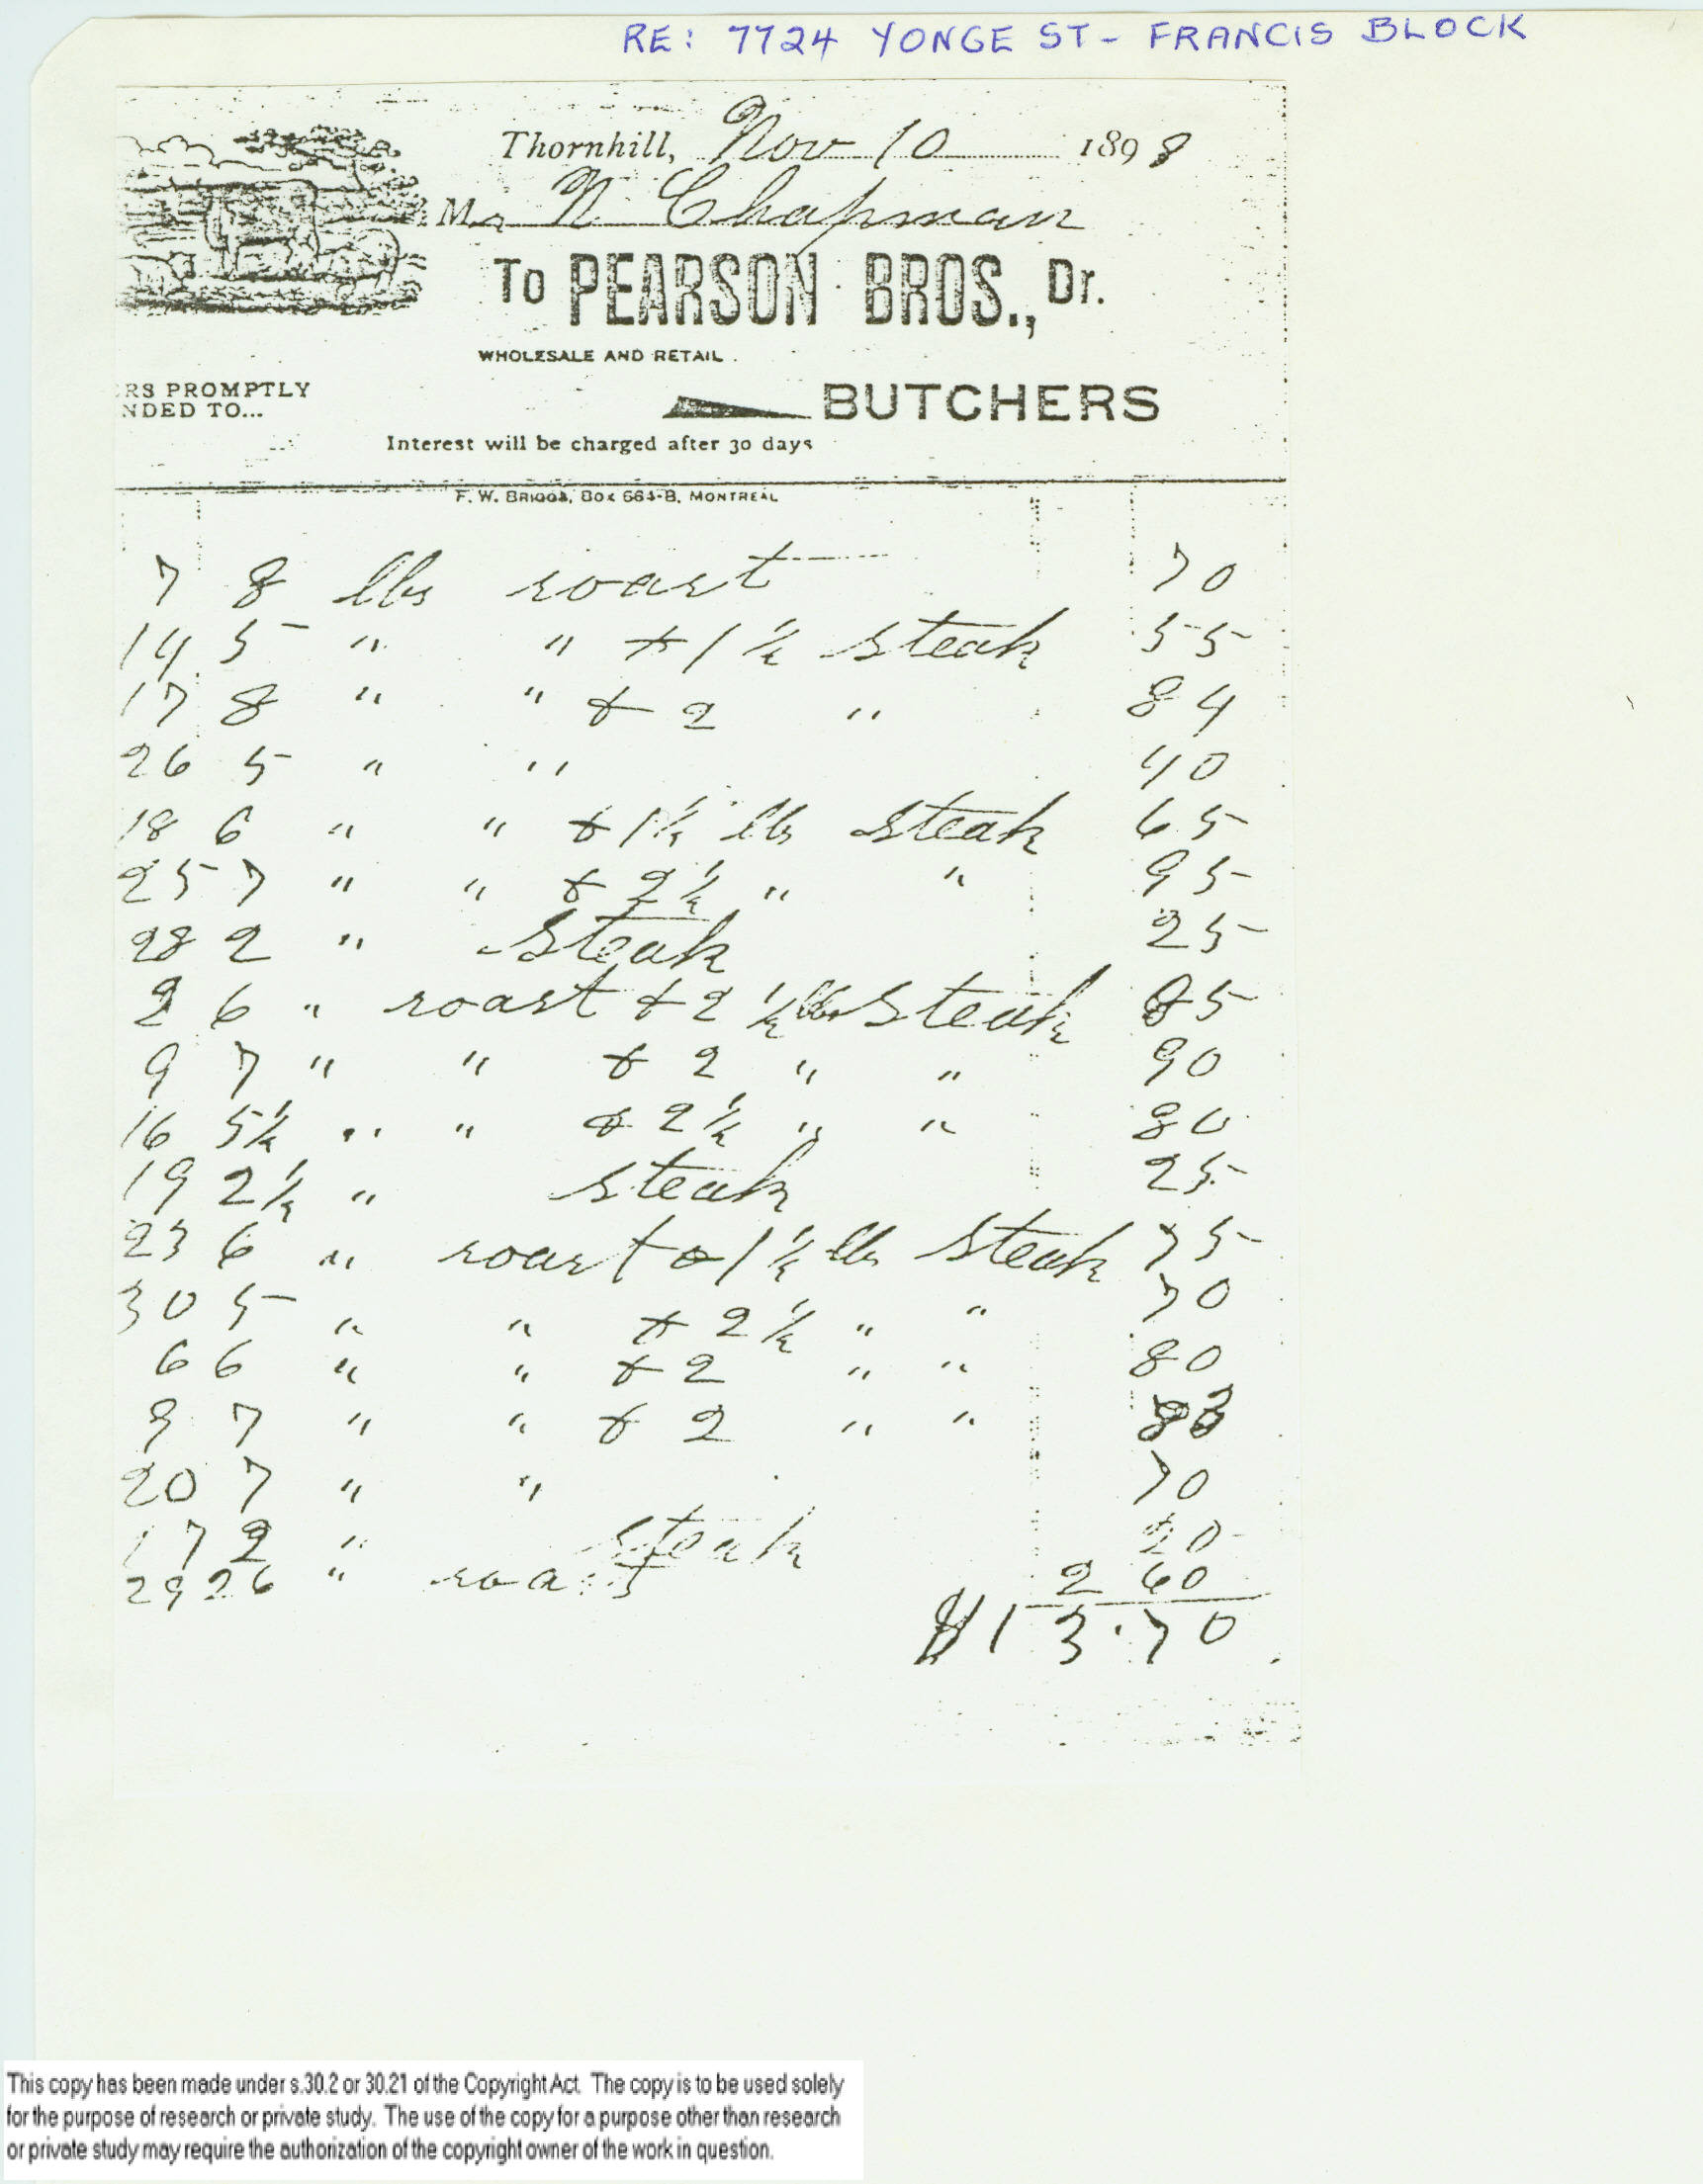 RE: 7724 YONGE ST - FRANCIS BLOCK
Thornhill, Nov 10 1898
Mr N Chapman
To PEARSON BROS., Dr.
WHOLESALE AND RETAIL
RS PROMPTLY
NDED TO...
BUTCHERS
Interest will be charged after 30 days
F. W. BRIGGS, BOX 664-B, MONTREAL
7 8 lbs roast 70
14 5 " " + 1 ½ steak 55
17 8 " " + 2 " 84
26 5 " " 40
18 6 " " + 1½ lbs steak 65
25 7 " " + 2½ " " 95
28 2 " steak 25
2 6 " roast + 2 ½ lbs steak 85
9 7 " " + 2 " " 90
16 5½ " " + 2½ " " 80
19 2½ " steak 25
23 6 " roast + 1 ½ lbs steak 75
30 5 " " + 2½ " " 70
6 6 " " + 2 " " 80
9 7 " " + 2 " "
20 7 " " 70
17 2 " steak 20
29 26 " roast 2 60
$13.70
This copy has been made under s.30.2 or 30.21 of the Copyright Act. The copy is to be used solely
for the purpose of research or private study. The use of the copy for a purpose other than research
or private study may require the authorization of the copyright owner of the work in question.